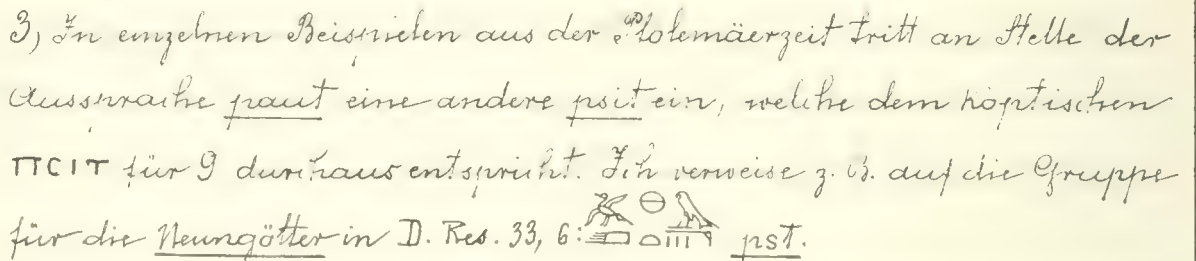 3) In einzelnen Beispielen aus der Ptolemäerzeit tritt an Stelle der
Aussprache paut eine andere psit ein, welche dem koptischen
ⲠⲤⲒⲦ für 9 durchaus entspricht. Ich verweise z. B. auf die Gruppe
für die Neungötter in D. Res. 33, 6: pst.